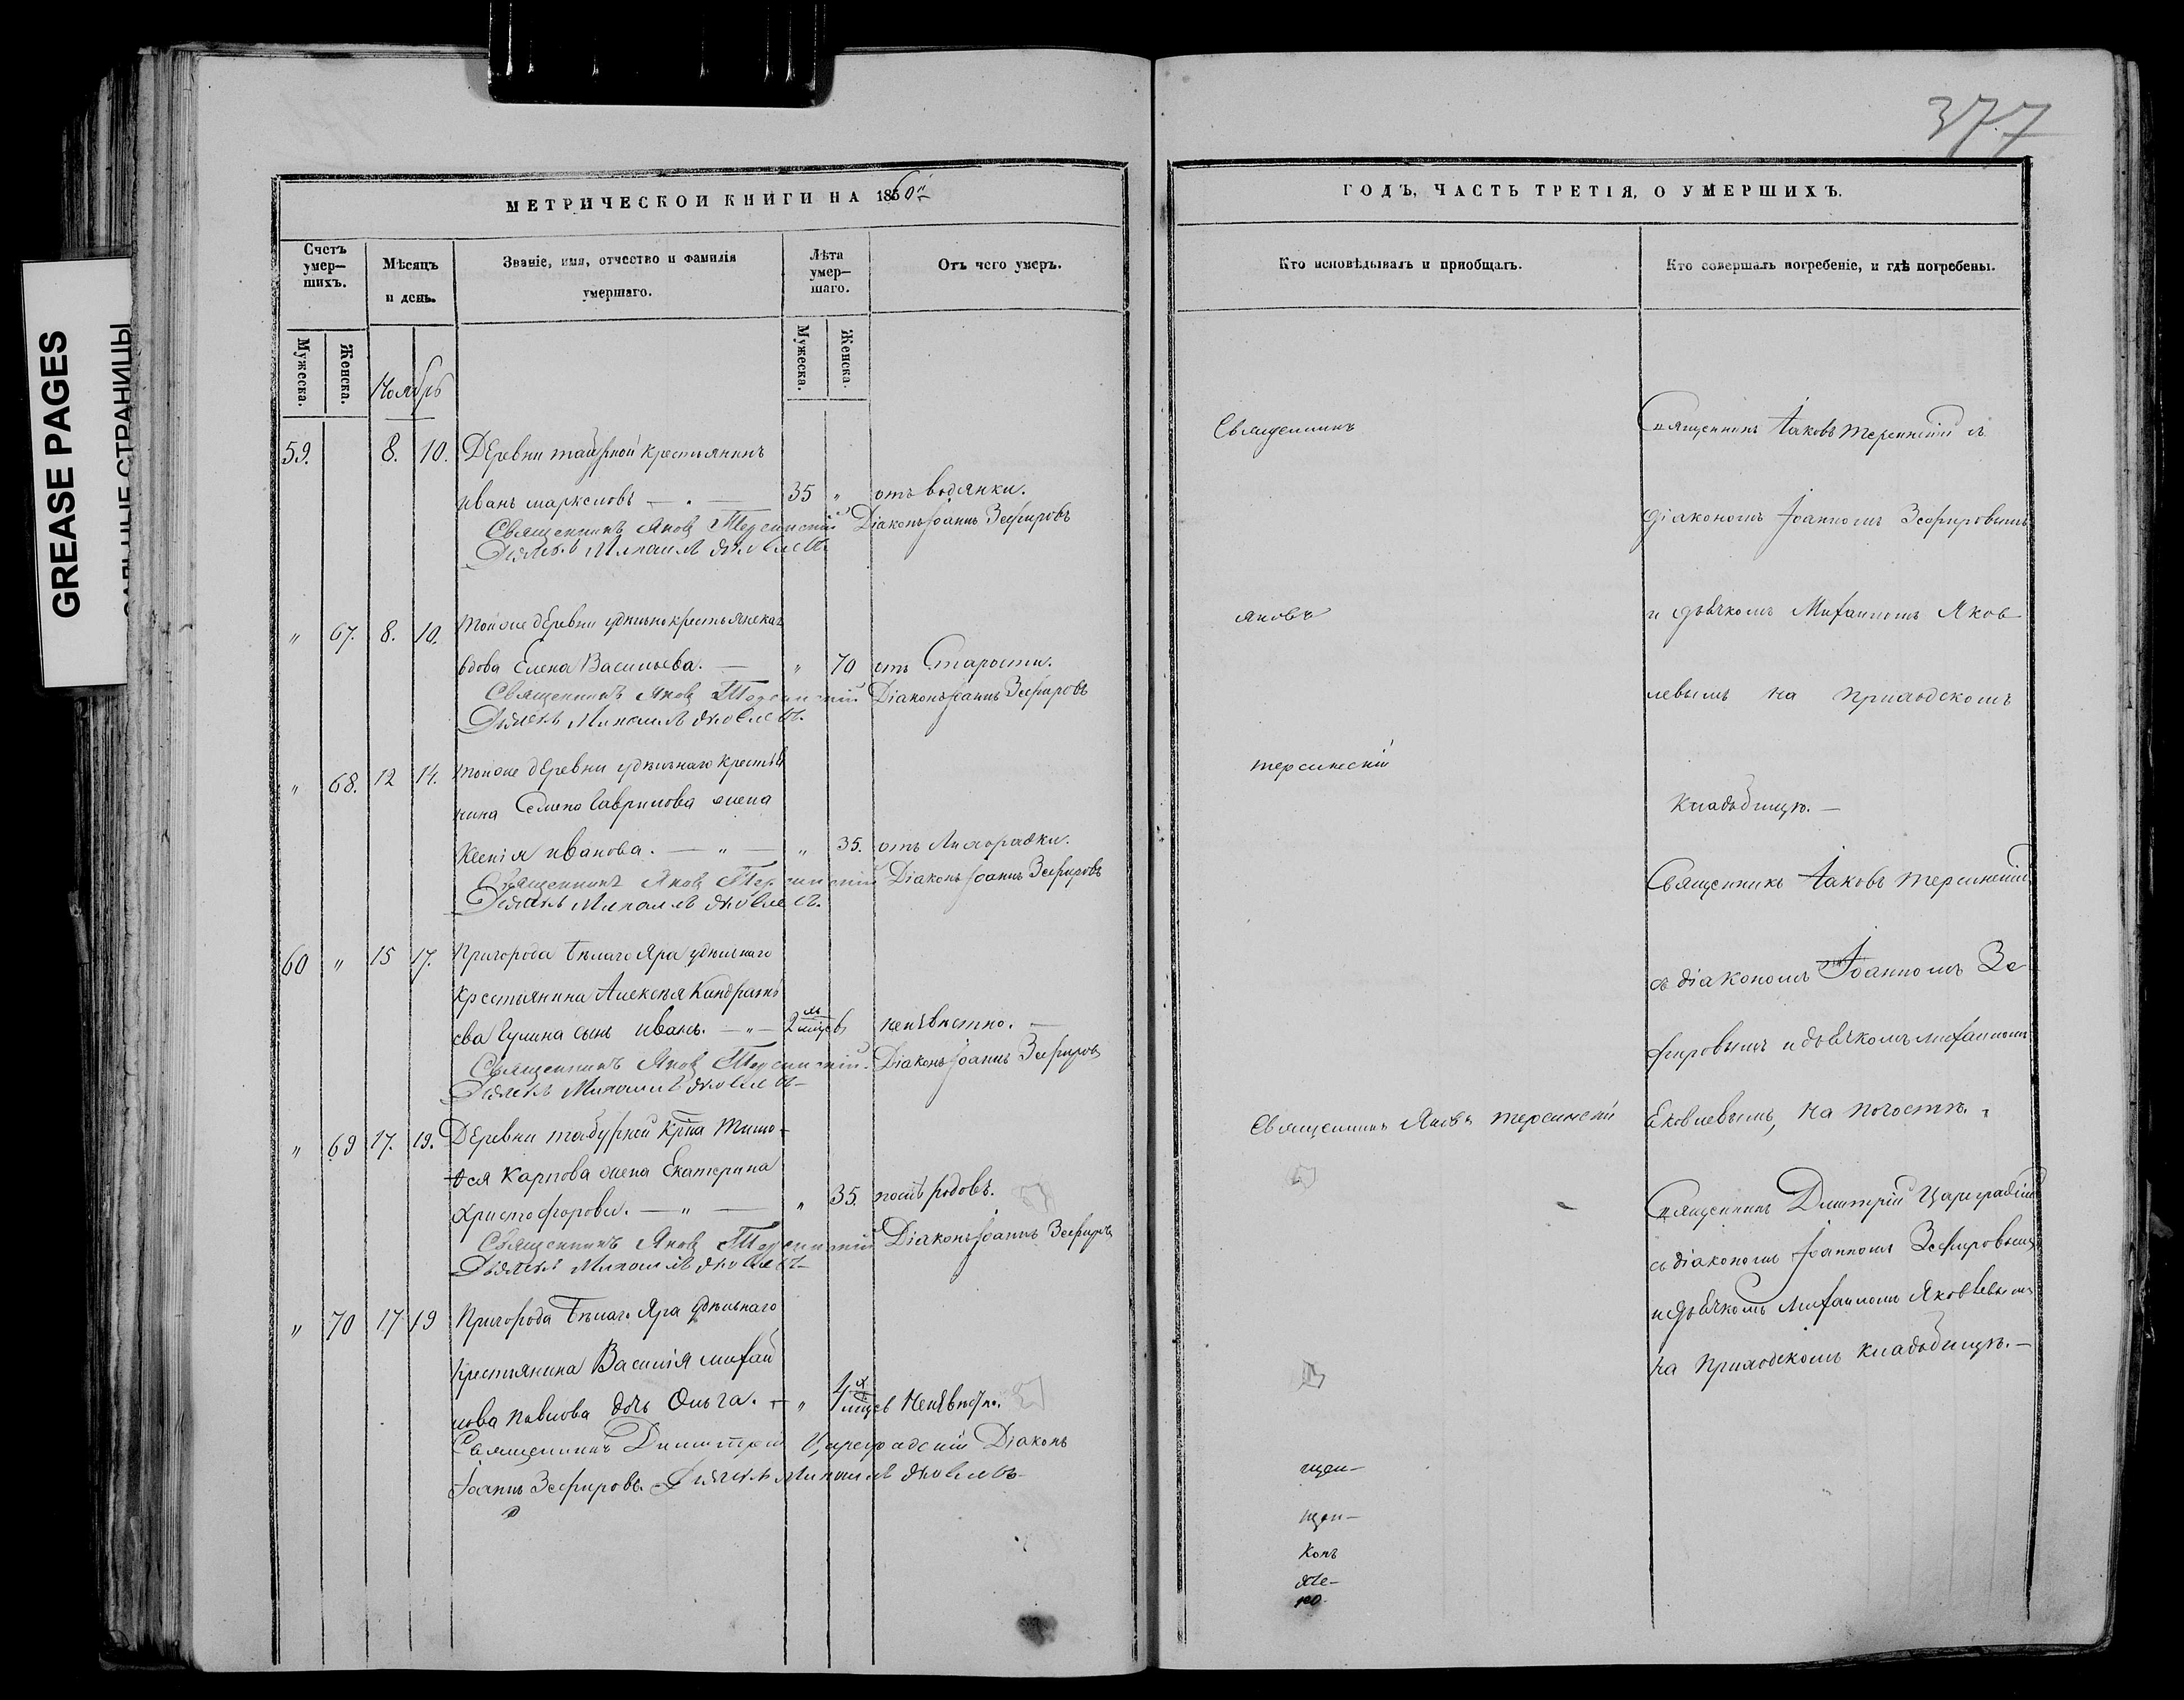 377
GREASE PAGES
МЕТРИЧЕСКОЙ КНИГИ НА 1860й
Счетъ умер—шихъ.
Мужеска.
Женска.
Мѣсяцъ и день.
Ноябрь
Званіе, имя, отчество и фамилія умершаго.
Лѣта умер—шаго.
Мужеска.
Женска.
Отъ чего умеръ.
59. 8. 10. Деревни крестьянинъ
Иванъ — 35 „ отъ водянки.
Священникъ Яковъ Терсинскій Діаконъ Іоаннъ Зефировъ
Дьячекъ Михаилъ Яковлевъ.
„ 67. 8. 10. Той же деревни удѣльно крестьянская
вдова Елена Васильева. — „ 70 отъ Старости.
Священникъ Яковъ Терсинскій Діаконъ Іоаннъ Зефировъ
Дьячекъ Михаилъ Яковлевъ.
„ 68. 12 14. Той же деревни удѣльнаго крестья
нина Семена Гаврилова жена
Ксенія Иванова. — „ — „ 35. отъ Лихорадки.
Священникъ Яковъ Терсинскій Діаконъ Іоаннъ Зефировъ
Дьячекъ Михаилъ Яковлевъ.
60 „ 15 17. Пригорода Бѣлаго Яра удѣльнаго
крестьянина Алексѣя Кандрать
ева сынъ Иванъ. — „ — 2 мцев неизвѣстно. —
Священникъ Яковъ Терсинскій. Діаконъ Іоаннъ Зефировъ
Дьячекъ Михаилъ Яковлевъ—
„ 69 17. 19. Деревни крна Тимо-
ѳея Карпова жена Екатерина
Христофорова. — „ — „ 35. послѣ родовъ.
Священникъ Яковъ Терсинскій Діаконъ Іоаннъ Зефировъ
Дьячекъ Михаилъ Яковлевъ—
„ 70 17 19 Пригорода Бѣлаго Яра удѣльнаго
крестьянина Василія Михай
лова Павлова дочь Ольга. — „ 4 мцев Неизвѣстно.
Священникъ Димитрій Цареградскій Діаконъ
Іоаннъ Зефировъ. Дьячекъ Михаилъ Яковлевъ—
ГОДЪ, ЧАСТЬ ТРЕТІЯ, О УМЕРШИХЪ.
Кто исповѣдывалъ и приобщалъ.
Священникъ
Яковъ
Терсинскій
Священникъ Яковъ Терсинскій
щен—
щен—
конъ
Кто совершалъ погребеніе, и гдѣ погребены.
Священникъ Іаковъ Терсинскій съ
діакономъ Іоанномъ Зефировымъ
и дьячкомъ Михаиломъ Яков
левымъ на приходскомъ
кладбищѣ. —
Священникъ Іаковъ Терсинскій
съ діакономъ Іоанномъ Зе
фировымъ и дьячкомъ Михаиломъ
Яковлевымъ, на погостѣ.
Священникъ Димитрій Цареградскій
съ діакономъ Іоанномъ Зефировымъ
и дьячкомъ Михаиломъ Яковлевымъ
на приходскомъ кладбищѣ. —